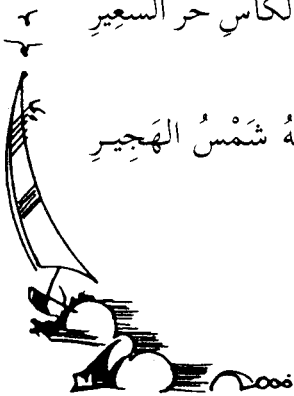 لكأسِ حر السعِيرِ
هُ شَمْسُ الهَجِيرِ